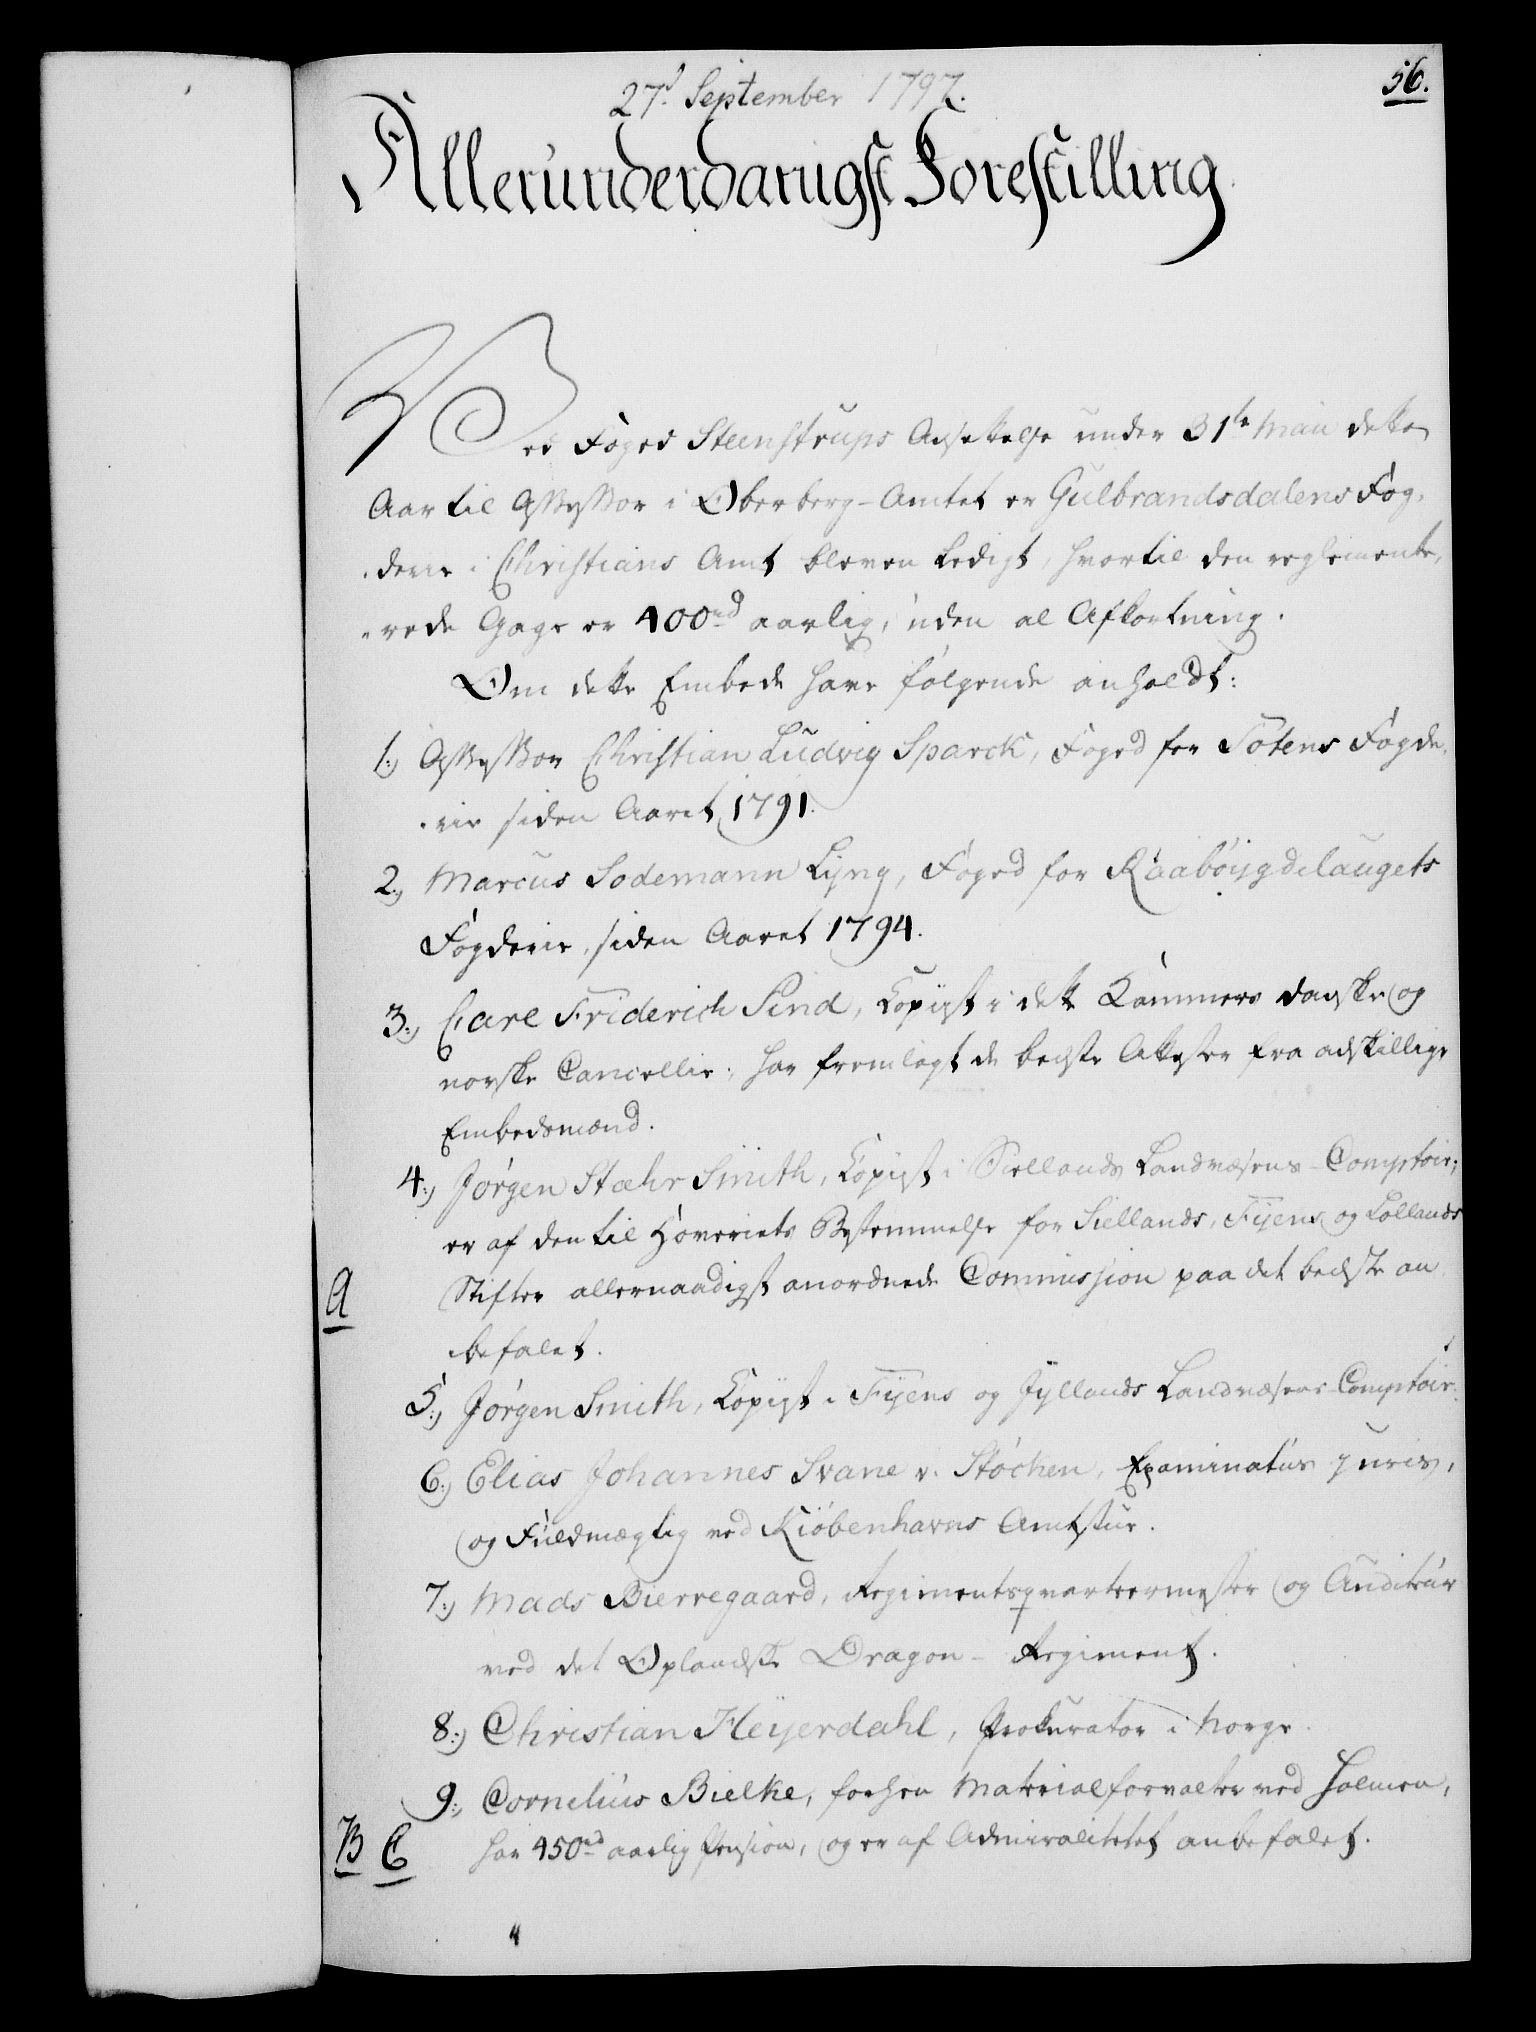 27d September 1797.
56.
Allerunderdanigst Forestilling.
Ved Foged Steenstrups Ansettelse under 31te Maii dette
Aar til Assessor i Oberberg-Amtet er Gulbrandsdalens Fog-
derie i Christians Amt bleven ledigt, hvortil den reglemente-
rede Gage er 400rd aarlig, uden al Afkortning.
Om dette Embede have følgende anholdt:
1.) Assessor Christian Ludvig Sparck, Foged for Totens Fogde-
rie siden Aaret 1791.
2.) Marcus Sodemann Lyng, Foged for Raabøygdelaugets
Fogderie, siden Aaret 1794.
3.) Carl Friderich Lind, Copiist i dette Kammers danske og
norske Cancellie; har fremlagt de bedste Attester fra adskillige
Embedsmænd.
4.) Jørgen Stæhr Smith, Copiist i Siellands Landvæsens-Comptoir;
er af den til Hoveriets Bestemmelse for Siellands, Fyens og Lollands
Stifter allernaadigst anordnede Commission paa det bedste an-
befalet.
A
5.) Jørgen Smith, Copiist i Fyens og Jyllands Landvæsens-Comptoir.
6.) Elias Johannes Svane v. Støcken, Examinatus juris,
og Fuldmægtig ved Kiøbenhavns Amtstue.
7.) Mads Bierregaard, Regimentsqvarteermester og Auditeur
ved det Oplandske Dragon-Regiment.
8.) Christian Heyerdahl, Prokurator i Norge.
9.) Cornelius Bielke, forhen Materialforvalter ved Holmen,
har 450rd aarlig Pension, og er af Admiralitetet anbefalet.
B C